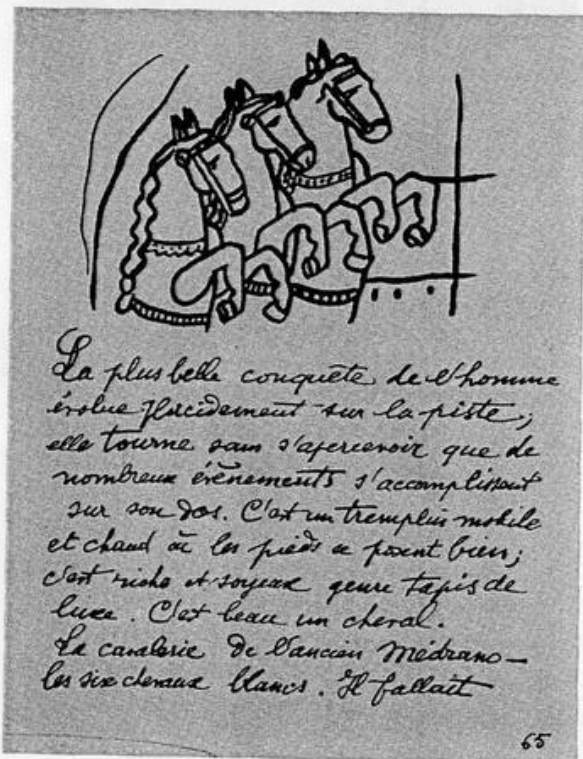 La plus belle conquête de l'homme
évolue placidement sur la piste;
elle tourne sans s'apercevoir que de
nombreux événements s'accomplissent
sur son dos. C'est un tremplin mobile
et chaud où les pieds se posent bien;
c'est riche et soyeux genre tapis de
luxe. C'est beau un cheval.
La cavalerie de l'ancien Médrano—
les six chevaux blancs. Il fallait
65